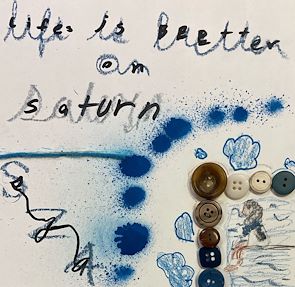 Life is Better
on
saturn
Sza